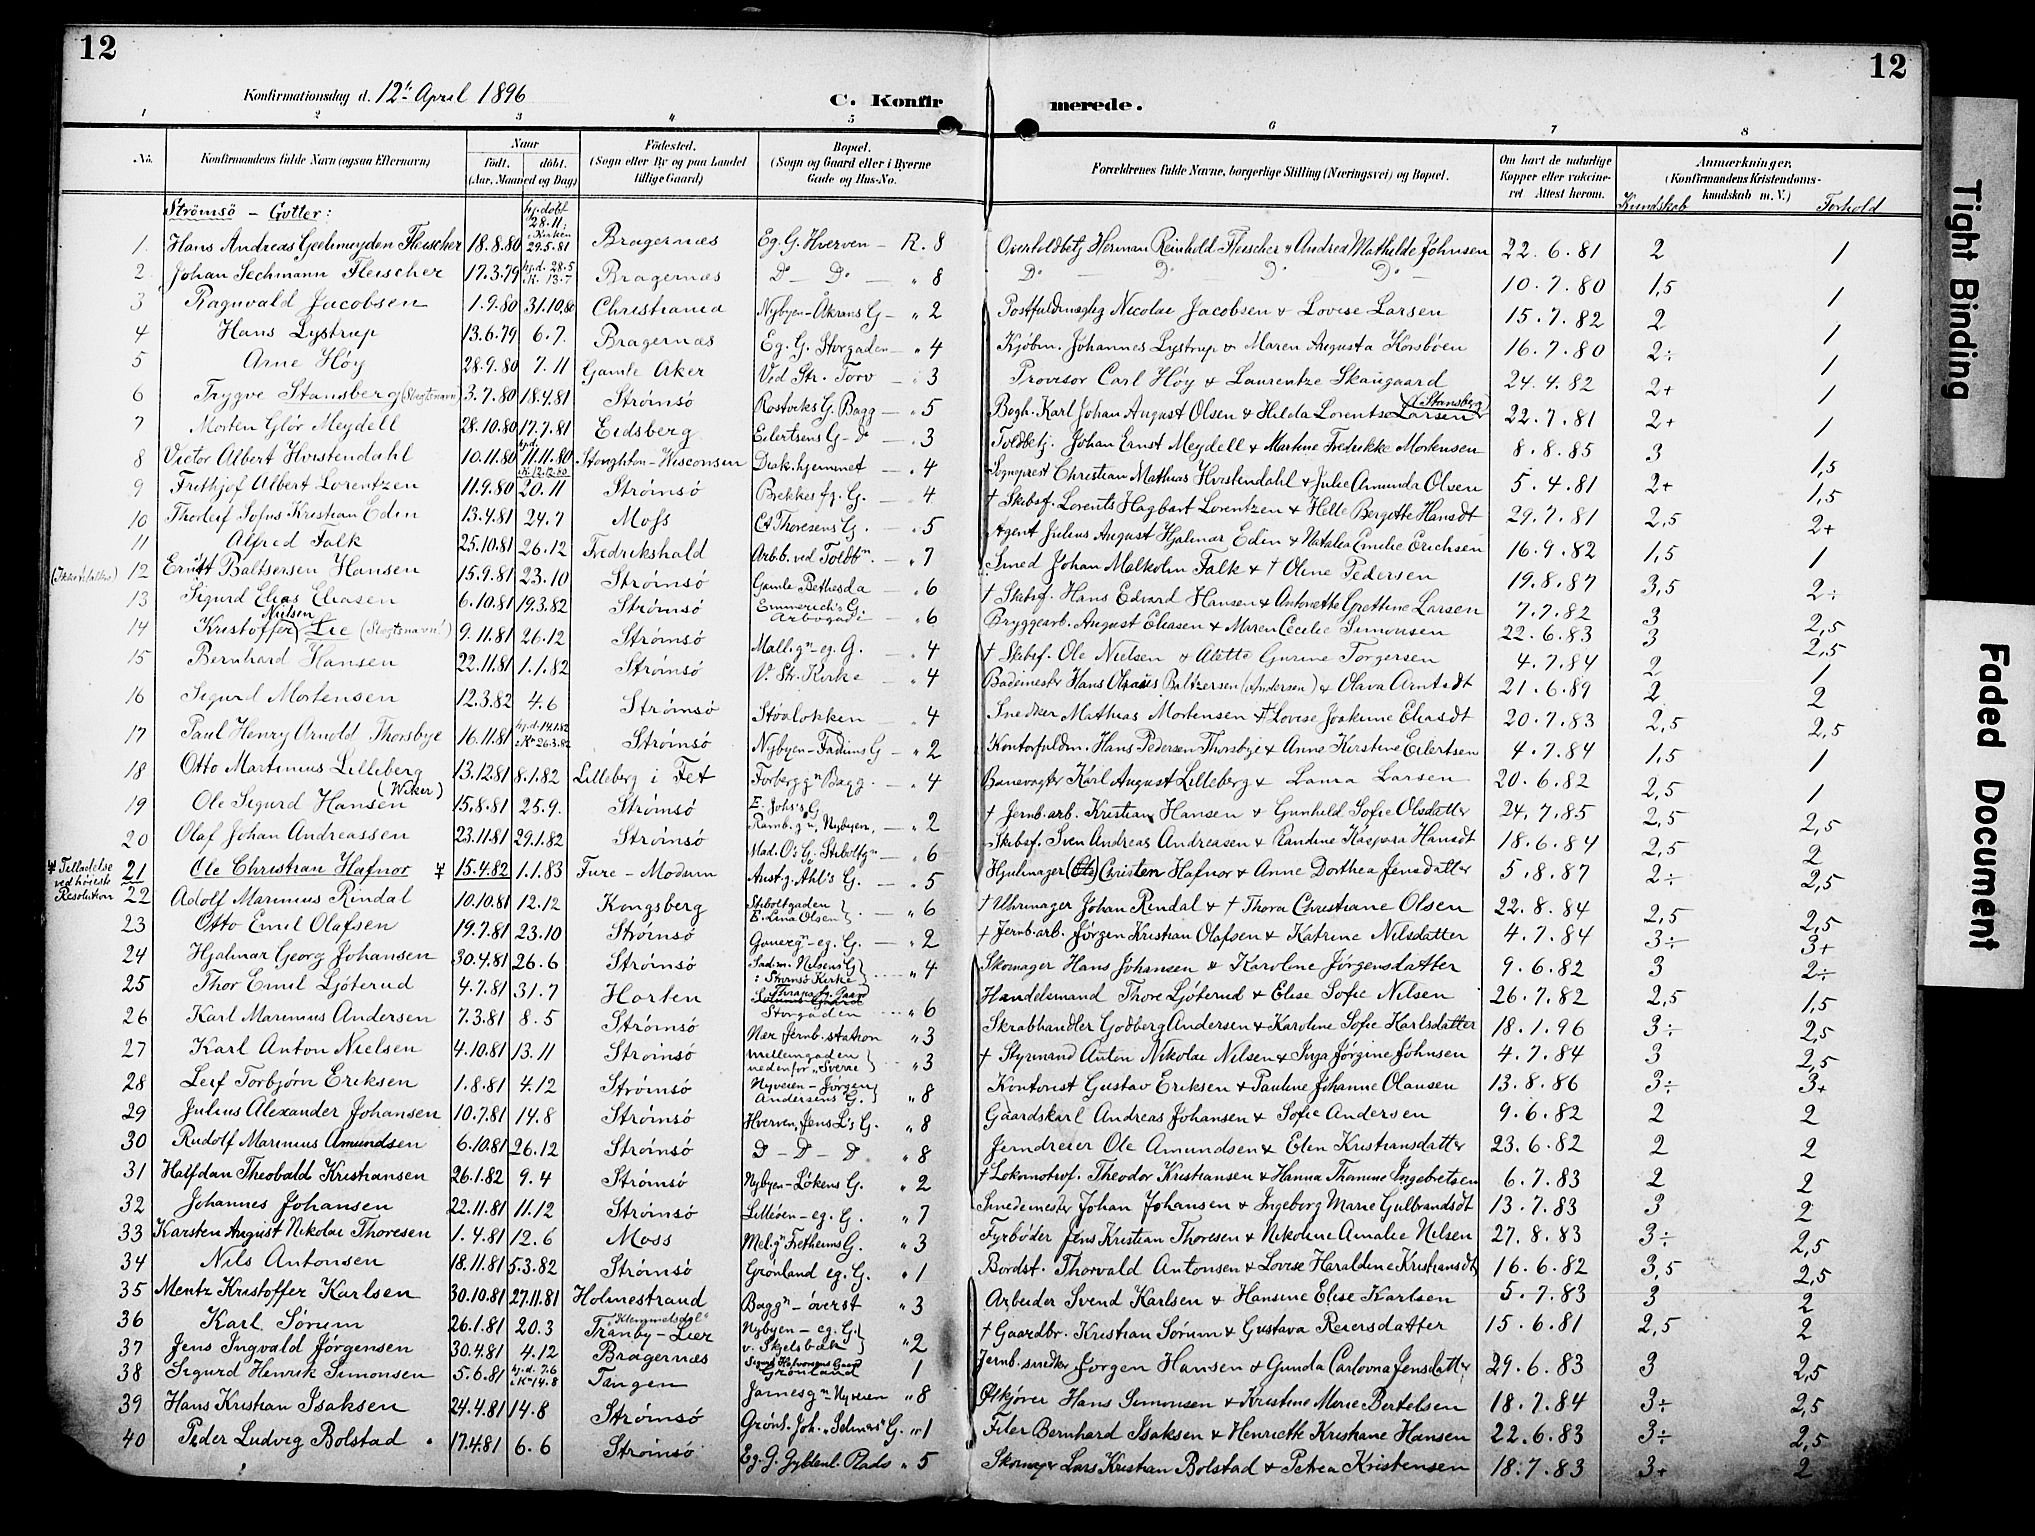 12
12
Konfirmationsdag d. 12' April 1896
C. Konfirmerede.
1 2 3 4 5 6 7 8
No. Konfirmandens fulde Navn (ogsaa Efternavn) Naar födt. döbt. (Aar, Maaned og Dag) Födested. (Sogn eller By og paa Landet tillige Gaard) Bopæl. (Sogn og Gaard eller i Byerne Gade og Hus-No. Forældrenes fulde Navne, borgerlige Stilling (Næringsvei) og Bopæl. Om havt de naturlige Kopper eller vaccineret Attest herom. Anmærkninger, (Konfirmandens Kristendomskundskab m. V.) Kundskab Forhold
Strømsø - Gutter:
1 Hans Andreas Geelmeyden Fleischer 18.8.80 hj.døbt 28.11. i Kirken 29.5.81 Bragernæs Eg. G. Hverven - R. 8 Overtoldbetj. Herman Reinhold Fleischer & Andrea Mathilde Johnsen 22.6.81 2 1
2 Johan Sechmann Fleischer 17.3.79 hj.d. 28.5 i K. 13.7 Bragernæs Do - Do - " 8 Do - Do Do Do - 10.7.80 1,5 1
3 Ragnvald Jacobsen 1.9.80 31.10.80 Christiania Nybyen - Åkrans G - " 2 Postfuldmægtig Nicolai Jacobsen & Lovise Larsen 15.7.82 2 1
4 Hans Lystrup 13.6.79 6.7. Bragernæs Eg. G. Storgaden - " 4 Kjøbm. Johannes Lystrup & Maren Augusta Korsbøen 16.7.80 2÷ 1
5 Arne Høy 28.9.80 7.11 Gamle Aker Ved Str. Torv - " 3 Provisor Carl Høy & Laurentze Skaugaard 24.4.82 2+ 1
6 Trygve Stansberg (Slægtsnavn) 3.7.80 18.4.81 Strømsø Rostveks G. Bagg - " 5 Bogh. Karl Johan August Olsen & Hilda Lorentse Larsen (Stansberg) 22.7.81 2+ 1
7 Morten Glør Meydell 28.10.80 17.7.81 Eidsberg Eilertsens G - Do - " 3 Toldbetj. Johan Ernst Meydell & Martine Fredrikke Mortensen 8.8.85 3 1,5
8 Victor Albert Hvistendahl 10.11.80 hj.d. 11.11.80 i K. 12.12.80 Stoughton - Wisconsen Diak.hjemmet - " 4 Sogneprest Christian Mathias Hvistendahl & Julie Amunda Olsen 5.4.81 2+ 1,5
9 Frithjof Albert Lorentzen 11.9.80 20.11 Strømsø Brekkes fg. G. - " 4 † Skibsf. Lorents Hagbart Lorentzen & Helle Bergitte Hansdt 29.7.81 2,5 2+
10 Thorleif Sofus Kristian Edin 13.4.81 24.7 Moss Ct Thoresens G. - " 5 Agent Julius August Hjalmar Edin & Natalia Emilie Erichsen 16.9.82 1,5 1
11 Alfred Falk 25.10.81 26.12 Fredrikshald Arb.b. ved Toldbn. - " 7 Smed Johan Malkolm Falk & † Oline Pedersen 19.8.87 3,5 2÷
12 Ernst Baltsersen Hansen 15.9.81 23.10 Strømsø Gamle Bethesda " 6 † Skibsf. Hans Edvard Hansen & Antonette Grettine Larsen 7.7.82 3 2,5
13 Sigurd Elias Eliasen 6.10.81 19.3.82 Strømsø Emmerich's G. Arbogade " 6 Bryggearb. August Eliasen & Maren Cecilie Simonsen 22.6.83 3 2,5
14 Kristoffer Nielsen Lie (Slægtsnavn!) 9.11.81 26.12 Strømsø Mall.gn - eg. G. - " 4 † Skibsf. Ole Nielsen & Alette Gurine Torgersen 4.7.84 2 1
15 Bernhard Hansen 22.11.81 1.1.82 Strømsø V. Str. Kirke - " 4 Bademester Hans Olaus Baltzersen (Andersen) & Olava Arntsdt 21.6.89 2 2
16 Sigurd Mortensen 12.3.82 4.6 Strømsø Støalokken - " 4 Snedker Mathias Mortensen & † Lovise Joakime Eliasdt 20.7.83 2,5 2,5
17 Paul Henry Arnold Thorsbye 16.11.81 hj.d. 14.1.82 i Kn 26.3.82 Strømsø Nybyen - Fadums G - " 2 Kontorfuldm. Hans Pedersen Thorsbye & Anne Kirstine Eilertsen 4.7.84 1,5 1
18 Otto Martinius Lilleberg 13.12.81 8.1.82 Lilleberg i Fet Forbergg n Bagg. - " 4 Banevogter Karl August Lilleberg & Lama Larsen 20.6.82 2,5 1
19 Ole Sigurd Hansen (Wiker) 15.8.81 25.9. Strømsø E. Johs's G. Ramb.gn, Nybyen, - " 2 † Jernb.arb. Kristian Hansen & Gunhild Sofie Olsdatter 24.7.85 2,5 2,5
20 Olaf Johan Andreassen 23.11.81 29.1.82 Strømsø Mad. O's G. Stiboltgn - " 6 Skibsf. Sven Andreas Andreasen & Randine Kaspara Hansdt 18.6.84 2,5 2
¥ Tilladelse ved høieste Resolution 21 Ole Christian Hafnor ¥ 15.4.82 1.1.83 Fure - Modum Aust.g. Ahl's G. - " 5 Hjulmager Christen Hafnor & Anne Dorthea Jensdatter 5.8.87 2÷ 2,5
22 Adolf Marinius Rindal 10.10.81 12.12 Kongsberg Stiboltgaden E. Lina Olsen - " 6 † Uhrmager Johan Rindal & † Thora Christiane Olsen 22.8.84 2,5 2,5
23 Otto Emil Olafsen 19.7.81 23.10 Strømsø Gauerg n - eg. G. - " 2 † Jernb.arb. Jørgen Kristian Olafsen & Katrine Nilsdatter 4.7.84 3÷ 3+
24 Hjalmar Georg Johansen 30.4.81 26.6 Strømsø Sadm. Nilsens G. : Strømsø Kirke " 4 Skomager Hans Johansen & Karoline Jørgensdatter 9.6.82 3 2÷
25 Thor Emil Ljøterud 4.7.81 31.7 Horten Storgaden " 6 Handelsmand Thore Ljøterud & Elise Sofie Nilsen 26.7.82 2,5 1,5
26 Karl Marinius Andersen 7.3.81 8.5 Strømsø Nær Jernb. station " 3 Skrabhandler Godberg Andersen & Karoline Sofie Karlsdatter 18.1.96 3÷ 2,5
27 Karl Anton Nielsen 4.10.81 13.11 Strømsø Mellemgaden nedenfor "Sverre" " 3 † Styrmand Anton Nikolai Nilsen & Inga Jørgine Johnsen 4.7.84 3 2,5
28 Leif Torbjørn Eriksen 1.8.81 4.12 Strømsø Nyveien - Jørgen Andersens G. " 8 Kontorist Gustav Eriksen & Pauline Johanne Olausen 13.8.86 3÷ 3+
29 Julius Alexander Johansen 10.7.81 14.8 Strømsø Hverven, Jens L's G. " 8 Gaardskarl Andreas Johansen & Sofie Andersen 9.6.82 2 2
30 Rudolf Marinius Amundsen 6.10.81 26.12 Strømsø Do - Do - Do " 8 Jerndreier Ole Amundsen & Elen Kristiansdatter 23.6.82 2 2
31 Halfdan Theobald Kristiansen 26.1.82 9.4 Strømsø Nybyen - Løkens G. " 2 † Lokomotivf. Theodor Kristiansen & Hanna Thomine Ingebretsen 6.7.83 2 2
32 Johannes Johansen 22.11.81 11.12 Strømsø Lilleøen - eg. G. " 7 Smedemester Johan Johansen & Ingeborg Marie Gulbrandsdt 13.7.83 3 2
33 Karsten August Nikolai Thoresen 1.4.81 12.6 Moss Mel.gn Fretheims G. " 3 Fyrbøder Jens Kristian Thoresen & Nikoline Amalie Nilsen 27.8.83 3÷ 2,5
34 Nils Antonsen 18.11.81 5.3.82 Strømsø Grønland eg. G. " 1 Bordst. Thorvald Antonsen & Lovise Haraldine Kristiansdt 16.6.82 3,5 2,5
35 Mentz Kristoffer Karlsen 30.10.81 27.11.81 Holmestrand Baggn - øverst " 3 Arbeider Svend Karlsen & Hansine Elise Karlsen 5.7.83 3 2
36 Karl Sørum 26.1.81 20.3 Tranby - Lier Nybyen - eg. G. v. Skjelsbæk " 2 † Gaardbr. Kristian Sørum & Gustava Reiersdatter 15.6.81 2,5 2
37 Jens Ingvald Jørgensen 30.4.81 4.12 Bragernæs Grønland 1 Jernb. snedker Jørgen Hansen & Gunda Carlovna Jensdatter 29.6.83 3 2,5
38 Sigurd Henrik Simonsen 5.6.81 hj.d. 7.6 i Kn 14.8 Tangen Jarnesg n Nyveien " 8 Øskjører Hans Simonsen & Kristine Marie Bertelsen 18.7.84 3÷ 2,5
39 Hans Kristian Isaksen 24.4.81 14.8 Strømsø Grønl. Joh. Selmas G. " 1 Filer Bernhard Isaksen & Henriette Kristiane Hansen 22.6.83 3÷ 2,5
40 Peder Ludvig Bolstad 17.4.81 6.6 Strømsø Eg. G. Gyldenl. Plads " 5 Skomager Lars Kristian Bolstad & Petrea Kristensen 18.7.83 3+ 2
Tight Binding
Faded Document